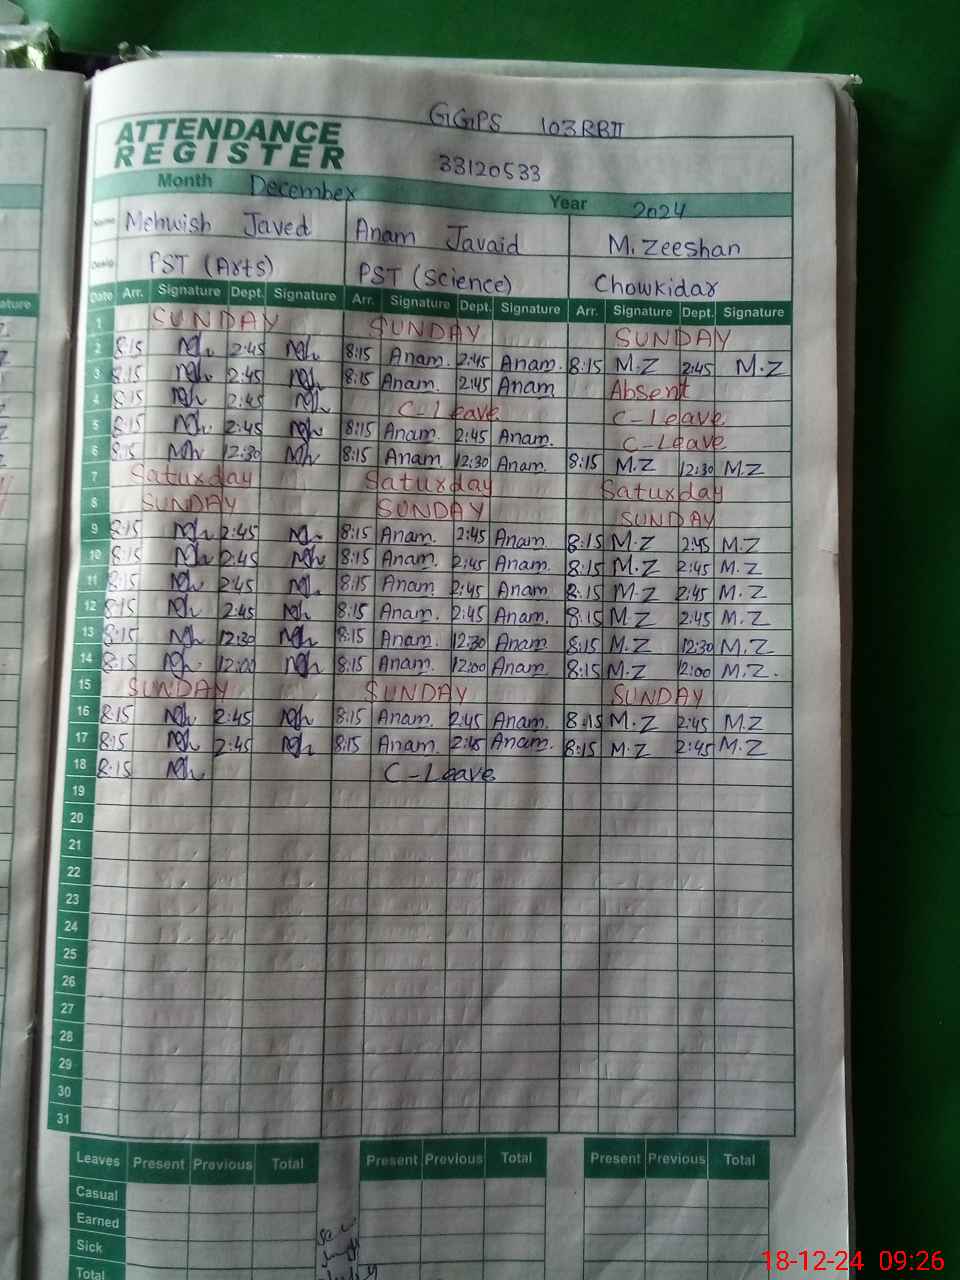 GGPS 103RBII
ATTENDANCE
REGISTER
33120533
Month December Year 2024
Name Mehwish Javed Anam Javaid M. Zeeshan
Desig PST (Arts) PST (Science) Chowkidar
Date Arr. Signature Dept. Signature Arr. Signature Dept. Signature Arr. Signature Dept. Signature
1 SUNDAY SUNDAY SUNDAY
2 8:15 2:45 8:15 Anam. 2:45 Anam. 8:15 M.Z 2:45 M.Z
3 8:15 2:45 8:15 Anam. 2:45 Anam Absent
4 8:15 2:45 C-Leave C-Leave
5 8:15 2:45 8:15 Anam. 2:45 Anam. C-Leave
6 8:15 12:30 8:15 Anam 12:30 Anam. 8:15 M.Z 12:30 M.Z
7 Saturday Saturday Saturday
8 SUNDAY SUNDAY SUNDAY
9 8:15 2:45 8:15 Anam. 2:45 Anam. 8:15 M.Z 2:45 M.Z
10 8:15 2:45 8:15 Anam. 2:45 Anam. 8:15 M.Z 2:45 M.Z
11 8:15 2:45 8:15 Anam. 2:45 Anam 8:15 M.Z 2:45 M.Z
12 8:15 2:45 8:15 Anam. 2:45 Anam. 8:15 M.Z 2:45 M.Z
13 8:15 12:30 8:15 Anam. 12:30 Anam. 8:15 M.Z 12:30 M.Z
14 8:15 12:00 8:15 Anam. 12:00 Anam. 8:15 M.Z 12:00 M.Z.
15 SUNDAY SUNDAY SUNDAY
16 8:15 2:45 8:15 Anam. 2:45 Anam. 8:15 M.Z 2:45 M.Z
17 8:15 2:45 8:15 Anam. 2:45 Anam. 8:15 M.Z 2:45 M.Z
18 8:15 C-Leave
19
20
21
22
23
24
25
26
27
28
29
30
31
Leaves Present Previous Total Present Previous Total Present Previous Total
Casual
Earned
Sick
Total
18-12-24 09:26